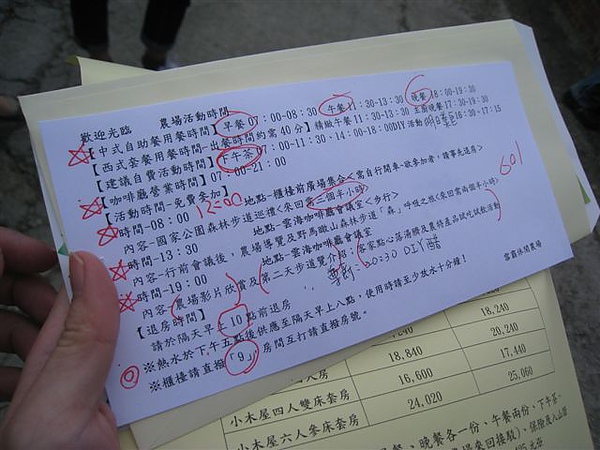 歡迎光臨 農場活動時間
【中式自助餐用餐時間】早餐07:00-08:30 午餐11:30-13:30 晚餐18:00-19:30
【西式套餐用餐時間-出餐時間約需40分】精緻午餐11:30-13:30 主廚晚餐17:30-19:30
【建議自費活動時間】下午茶07:00-11:30、14:00-18:00DIY活動 16:30-17:15
【咖啡廳營業時間】07:00-21:00
【活動時間-免費參加】 12:00
時間-08:00 地點-櫃檯前廣場集合<需自行開車、欲參加者、請事先退房> 601
內容-國家公園森林步道巡禮<來回需三個半小時>
時間-13:30 地點-雲海咖啡廳會議室<步行>
內容-行前會議後,農場導覽及野馬瞰山森林步道「森」呼吸之旅<來回需兩個半小時>
時間-19:00 地點-雲海咖啡廳會議室
內容(農場影片欣賞及第二天步道覽介紹
20:30 DIY 醋
雪霸休閒農場
【退房時間】
請於隔天早上10點前退房
※熱水於下午五點後供應至隔天早上八點,使用時請至少放水十分鐘!
※櫃檯請直撥「9」房間互打請直撥房號。
18,240
18,840 20,240
16,600 17,440
小木屋四人雙床套房 24,020 25,060
小木屋六人參床套房
晚餐各一份、午餐兩份、下午茶